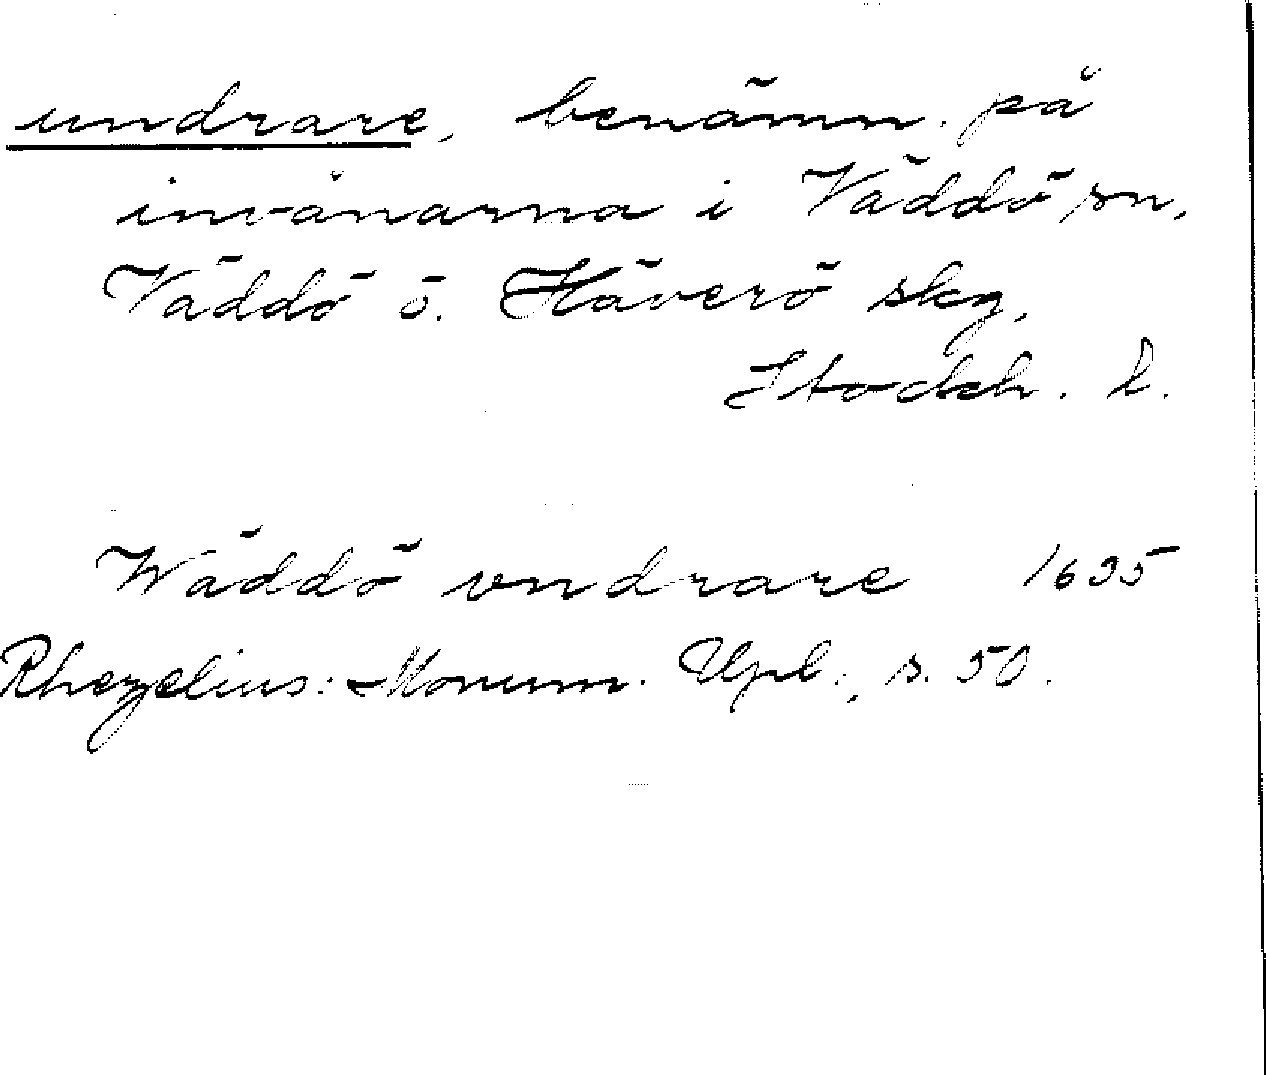 undrare, benämn. på
invånarna i Väddö sn,
Väddö o. Häverö skg,
Stockh. l.
Wäddö vndrare 1635
Rhezelius: Monum. Upl., s. 50.